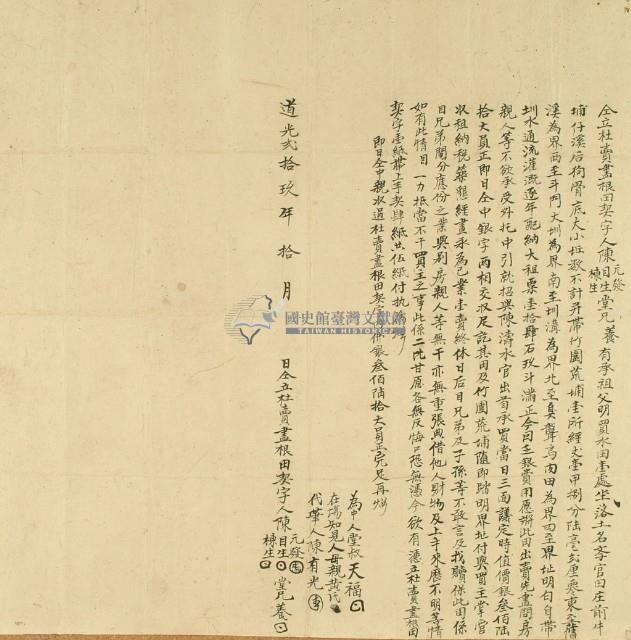 仝立杜賣盡根田契字人陳元發目生棟生堂兄養有承祖父明買水田壹處坐落土名李官田庄前牛
埔仔溪后狗骨底大小坵數不計并帶竹園荒埔壹所經丈壹甲捌分陸毫
溪為界西至斗門大圳為界南至圳溝為界北至吳聲高內田為界四至界址明白自帶
圳水通流灌溉逐年配納大租粟壹拾肆石玖斗滿正今因乏銀費用應將此田出賣先盡問房
親人等不欲承受外托中引就招與陳濤水官出首承買當日三面議定時值價銀叁佰陸
拾大員正即日仝中銀字兩相交收足訖其田及竹園荒埔隨即踏明界址付與買主掌管
收租納稅築墾經畫永為己業壹賣終休日后目兄弟及子孫等不敢言及找贖保此田係
目兄弟鬮分應份之業與別房親人等無干亦無重張典借他人財物及上手來歷不明等情
如有此情目一力抵當不干買主之事此係二比甘愿各無反悔口恐無憑今欲有憑立杜賣盡根田
契字壹紙帶上手契肆紙共伍紙付執炤
即日仝中親收過杜賣盡根田契字內佛銀叁佰陸拾大員正完足再炤
為中人堂叔天福
在場知見人母親黃氏
代筆人陳有光
道光貳拾玖年拾月 日仝立杜賣盡根田契字人陳元發目生棟生堂兄養
國史館臺灣文獻館
TAIWAN HISTORICA